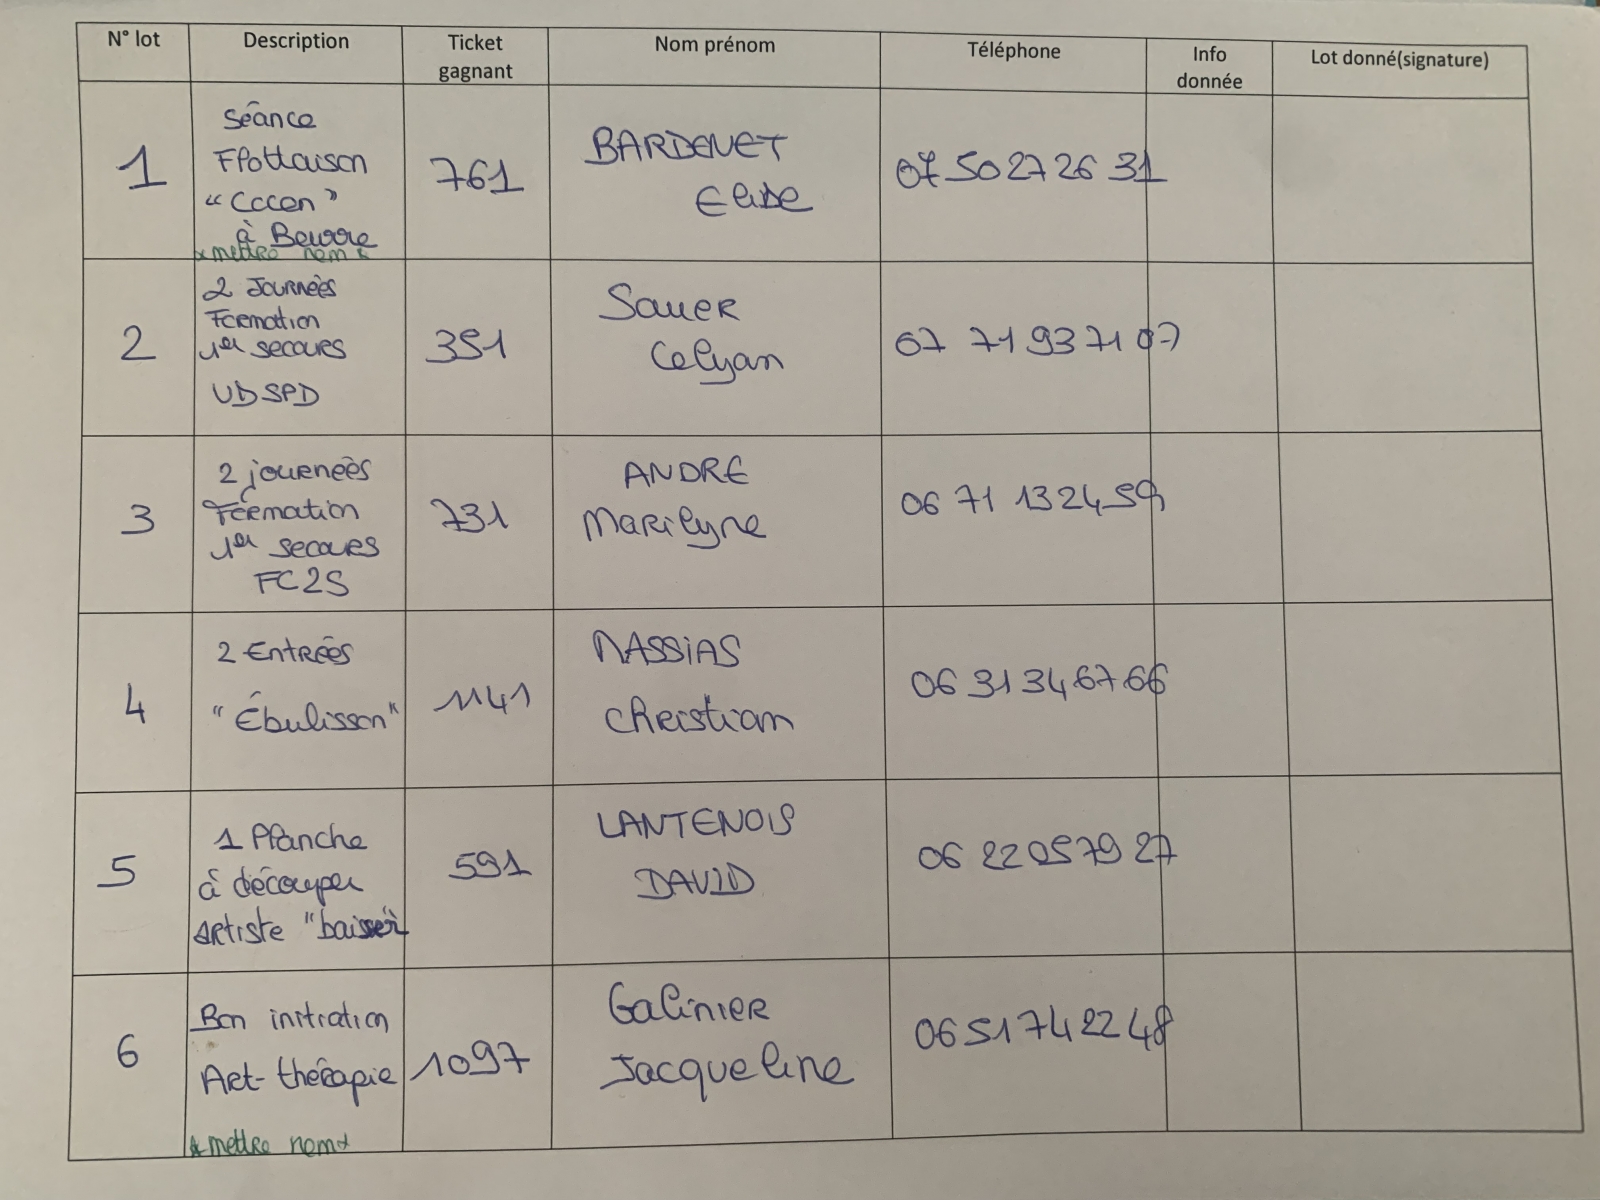 N° lot
Description
Ticket
gagnant
Nom prénom
Téléphone
Info
donnée
Lot donné(signature)
1
Séance
Flottaison
"Cocon"
à Beurre
* mettre nom *
761
BARDENET
Elise
07 50 27 26 31
2
2 Journées
Formation
1er secours
UDSPD
351
Sauer
Celyan
07 71 93 71 07
3
2 journeés
Formation
1er secours
FC2S
731
ANDRE
Marilyne
06 71 13 24 59
4
2 Entrées
"Ébulisson"
1141
MASSIAS
Christian
06 31 34 67 66
5
1 Planche
à découper
Artiste "baisser"
591
LANTENOIS
DAVID
06 22 05 79 27
6
Bon initiation
Art-thérapie
* mettre nom *
1097
Galinier
Jacqueline
06 51 74 22 48